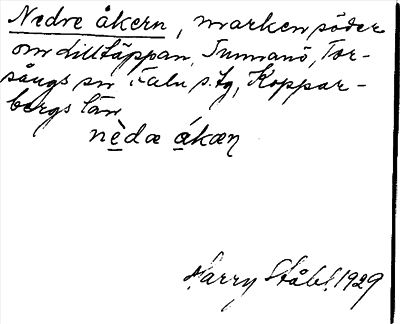 Nedre åkern, marken söder
om dilltäppan, Tunnanö, Tor-
sångs sn Falu s. tg, Koppar-
bergs län
nèdæ ákæn
Harry Ståhl 1929